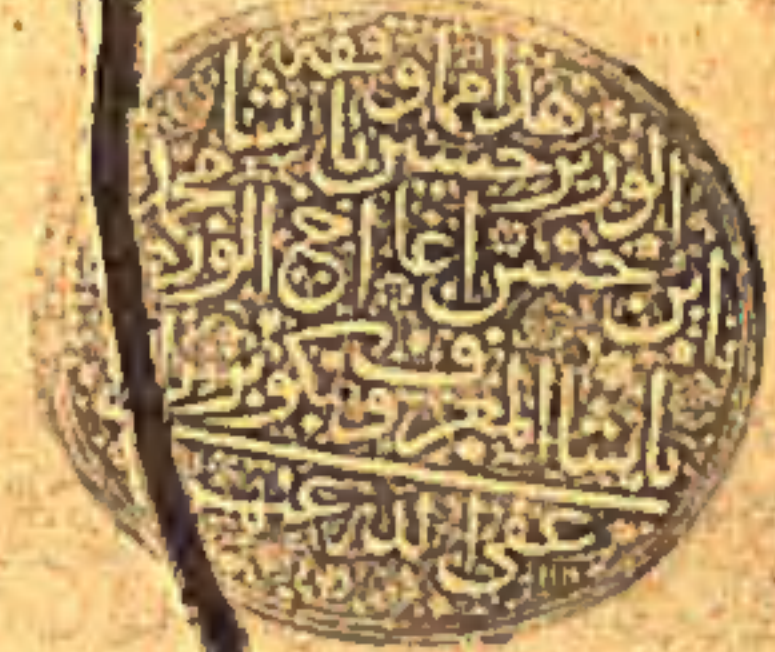 هذا ما وقفه
الوزير حسين باشا
ابن حسن اغا اخ الوزير محمد
باشا المعروف بكوبريلي
عفى الله